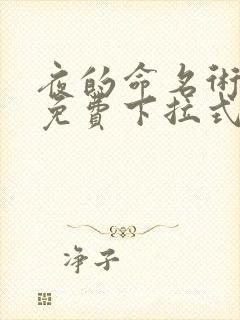 夜的命名術
免費下拉式
净子